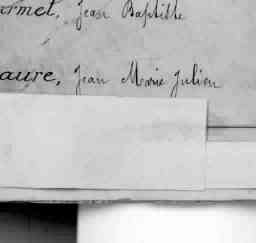 armet, Jean Baptiste
aure, Jean Marie Julien